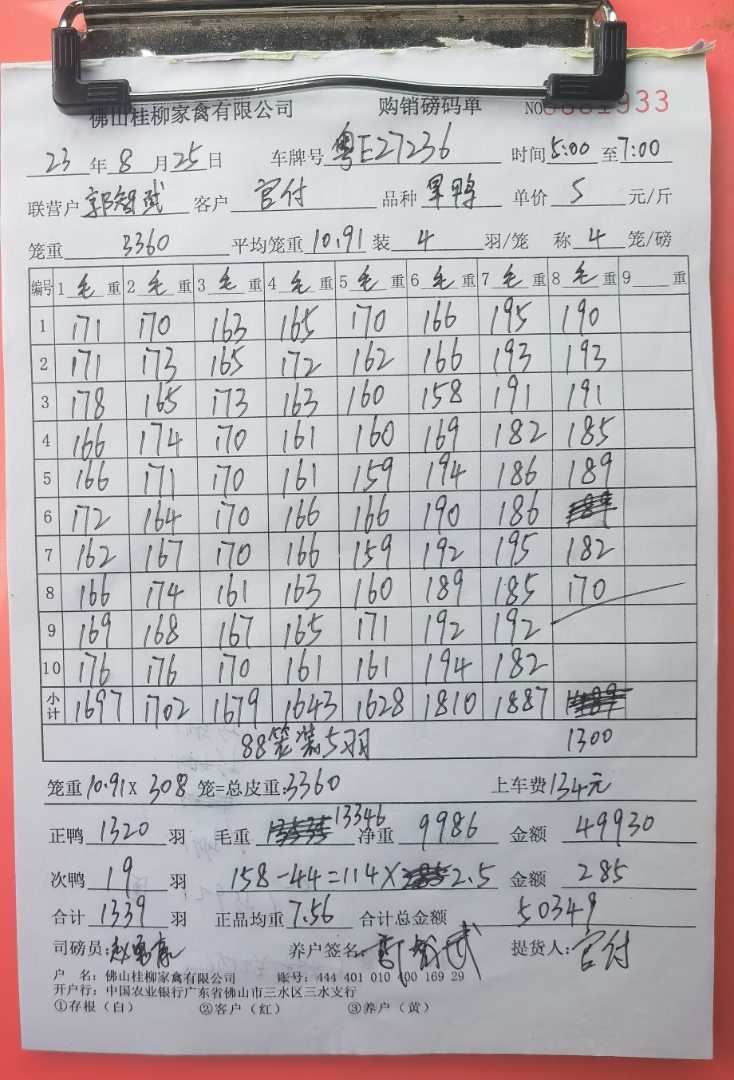 佛山桂柳家禽有限公司 购销磅码单 NO 1933
23 年 8 月 25 日 车牌号 粤E27236 时间 5:00 至 7:00
联营户 郭智武 客户 官付 品种 果鸭 单价 5 元/斤
笼重 3360 平均笼重 10.91 装 4 羽/笼 称 4 笼/磅
编号 1 毛 重 2 毛 重 3 毛 重 4 毛 重 5 毛 重 6 毛 重 7 毛 重 8 毛 重 9 重
1 171 170 163 165 170 166 195 190
2 171 173 165 172 162 166 193 193
3 178 165 173 163 160 158 191 191
4 166 174 170 161 160 169 182 185
5 166 171 170 161 159 194 186 189
6 172 164 170 166 166 190 186
7 162 167 170 166 159 192 195 182
8 166 174 161 163 160 189 185 170
9 169 168 167 165 171 192 192
10 176 176 170 161 161 194 182
小计 1697 1702 1679 1643 1628 1810 1887
88笼装5羽 1300
笼重 10.91 X 308 笼=总皮重:3360 上车费 134元
正鸭 1320 羽 毛重 13346 净重 9986 金额 49930
次鸭 19 羽 158-44=114X 2.5 金额 285
合计 1339 羽 正品均重 7.56 合计总金额 50349
司磅员: 养户签名: 郭智武 提货人: 官付
户 名: 佛山桂柳家禽有限公司 账号: 444 401 010 400 169 29
开户行: 中国农业银行广东省佛山市三水区三水支行
①存根(白) ②客户(红) ③养户(黄)